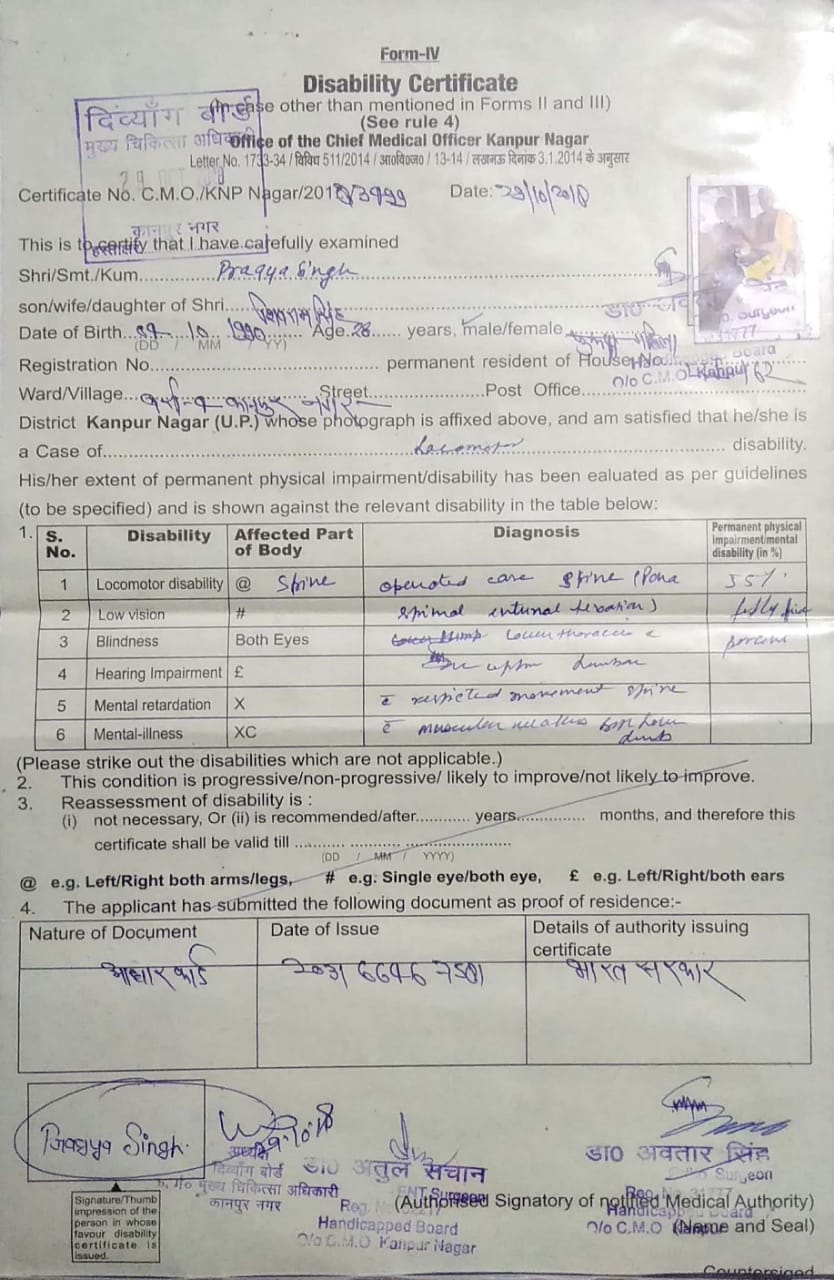 Form-IV
Disability Certificate
(In case other than mentioned in Forms II and III)
(See rule 4)
दिव्याँग बोर्ड
मुख्य चिकित्सा अधिकारी
कानपुर नगर
हस्ताक्षर
Office of the Chief Medical Officer Kanpur Nagar
Letter No. 1733-34 / विविध 511/2014 / आ०वि०ज० / 13-14 / लखनऊ दिनांक 3.1.2014 के अनुसार
Certificate No. C.M.O./KNP Nagar/201 Date: 29/10/2018
This is to certify that I have carefully examined
Shri/Smt./Kum. Pragya Singh
son/wife/daughter of Shri सिंह
Date of Birth 10 1990 Age 28 years, male/female
(DD MM YY)
Registration No. permanent resident of House No.
Ward/Village कानपुर नगर Street Post Office
District Kanpur Nagar (U.P.) whose photograph is affixed above, and am satisfied that he/she is
a Case of Locomotor disability.
His/her extent of permanent physical impairment/disability has been ealuated as per guidelines
(to be specified) and is shown against the relevant disability in the table below:
1. S. No. Disability Affected Part of Body Diagnosis Permanent physical impairment/mental disability (in %)
1 Locomotor disability @ Spine operated case spine 55%
2 Low vision # spinal internal fixation) fifty five
3 Blindness Both Eyes Lower thoracic & percent
4 Hearing Impairment £ upper lumbar
5 Mental retardation X c̄ restricted movement spine
6 Mental-illness XC c̄ muscular weakness both lower limbs
(Please strike out the disabilities which are not applicable.)
2. This condition is progressive/non-progressive/ likely to improve/not likely to improve.
3. Reassessment of disability is :
(i) not necessary, Or (ii) is recommended/after years, months, and therefore this
certificate shall be valid till
(DD / MM / YYYY)
@ e.g. Left/Right both arms/legs, # e.g. Single eye/both eye, £ e.g. Left/Right/both ears
4. The applicant has submitted the following document as proof of residence:-
Nature of Document Date of Issue Details of authority issuing certificate
आधार कार्ड 2031 6646 7501 भारत सरकार
Pragya Singh
अध्यक्ष
दिव्याँग बोर्ड
मुख्य चिकित्सा अधिकारी
कानपुर नगर
डा० अतुल सचान
ENT Surgeon
Handicapped Board
O/o C.M.O Kanpur Nagar
डा० अवतार सिंह
Surgeon
Handicapped Board
O/o C.M.O Kanpur
(Authorised Signatory of notified Medical Authority)
(Name and Seal)
Signature/Thumb
impression of the
person in whose
favour disability
certificate is
issued.
Countersigned